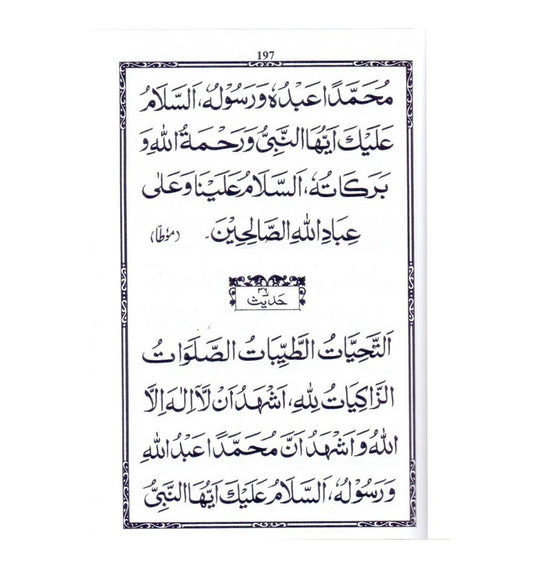 197
مُحَمَّدًا عَبْدُهٗ وَرَسُوْلُهٗ، اَلسَّلَامُ
عَلَيْكَ اَيُّهَا النَّبِيُّ وَرَحْمَةُ اللهِ وَ
بَرَكَاتُهٗ، اَلسَّلَامُ عَلَيْنَا وَعَلٰى
عِبَادِ اللهِ الصَّالِحِيْنَ۔ (مؤطا)
حدیث ۳۶
اَلتَّحِيَّاتُ الطَّيِّبَاتُ الصَّلَوَاتُ
الزَّاكِيَاتُ لِلّٰهِ، اَشْهَدُ اَنْ لَّا اِلٰهَ اِلَّا
اللهُ وَاَشْهَدُ اَنَّ مُحَمَّدًا عَبْدُ اللهِ
وَرَسُوْلُهٗ، اَلسَّلَامُ عَلَيْكَ اَيُّهَا النَّبِيُّ